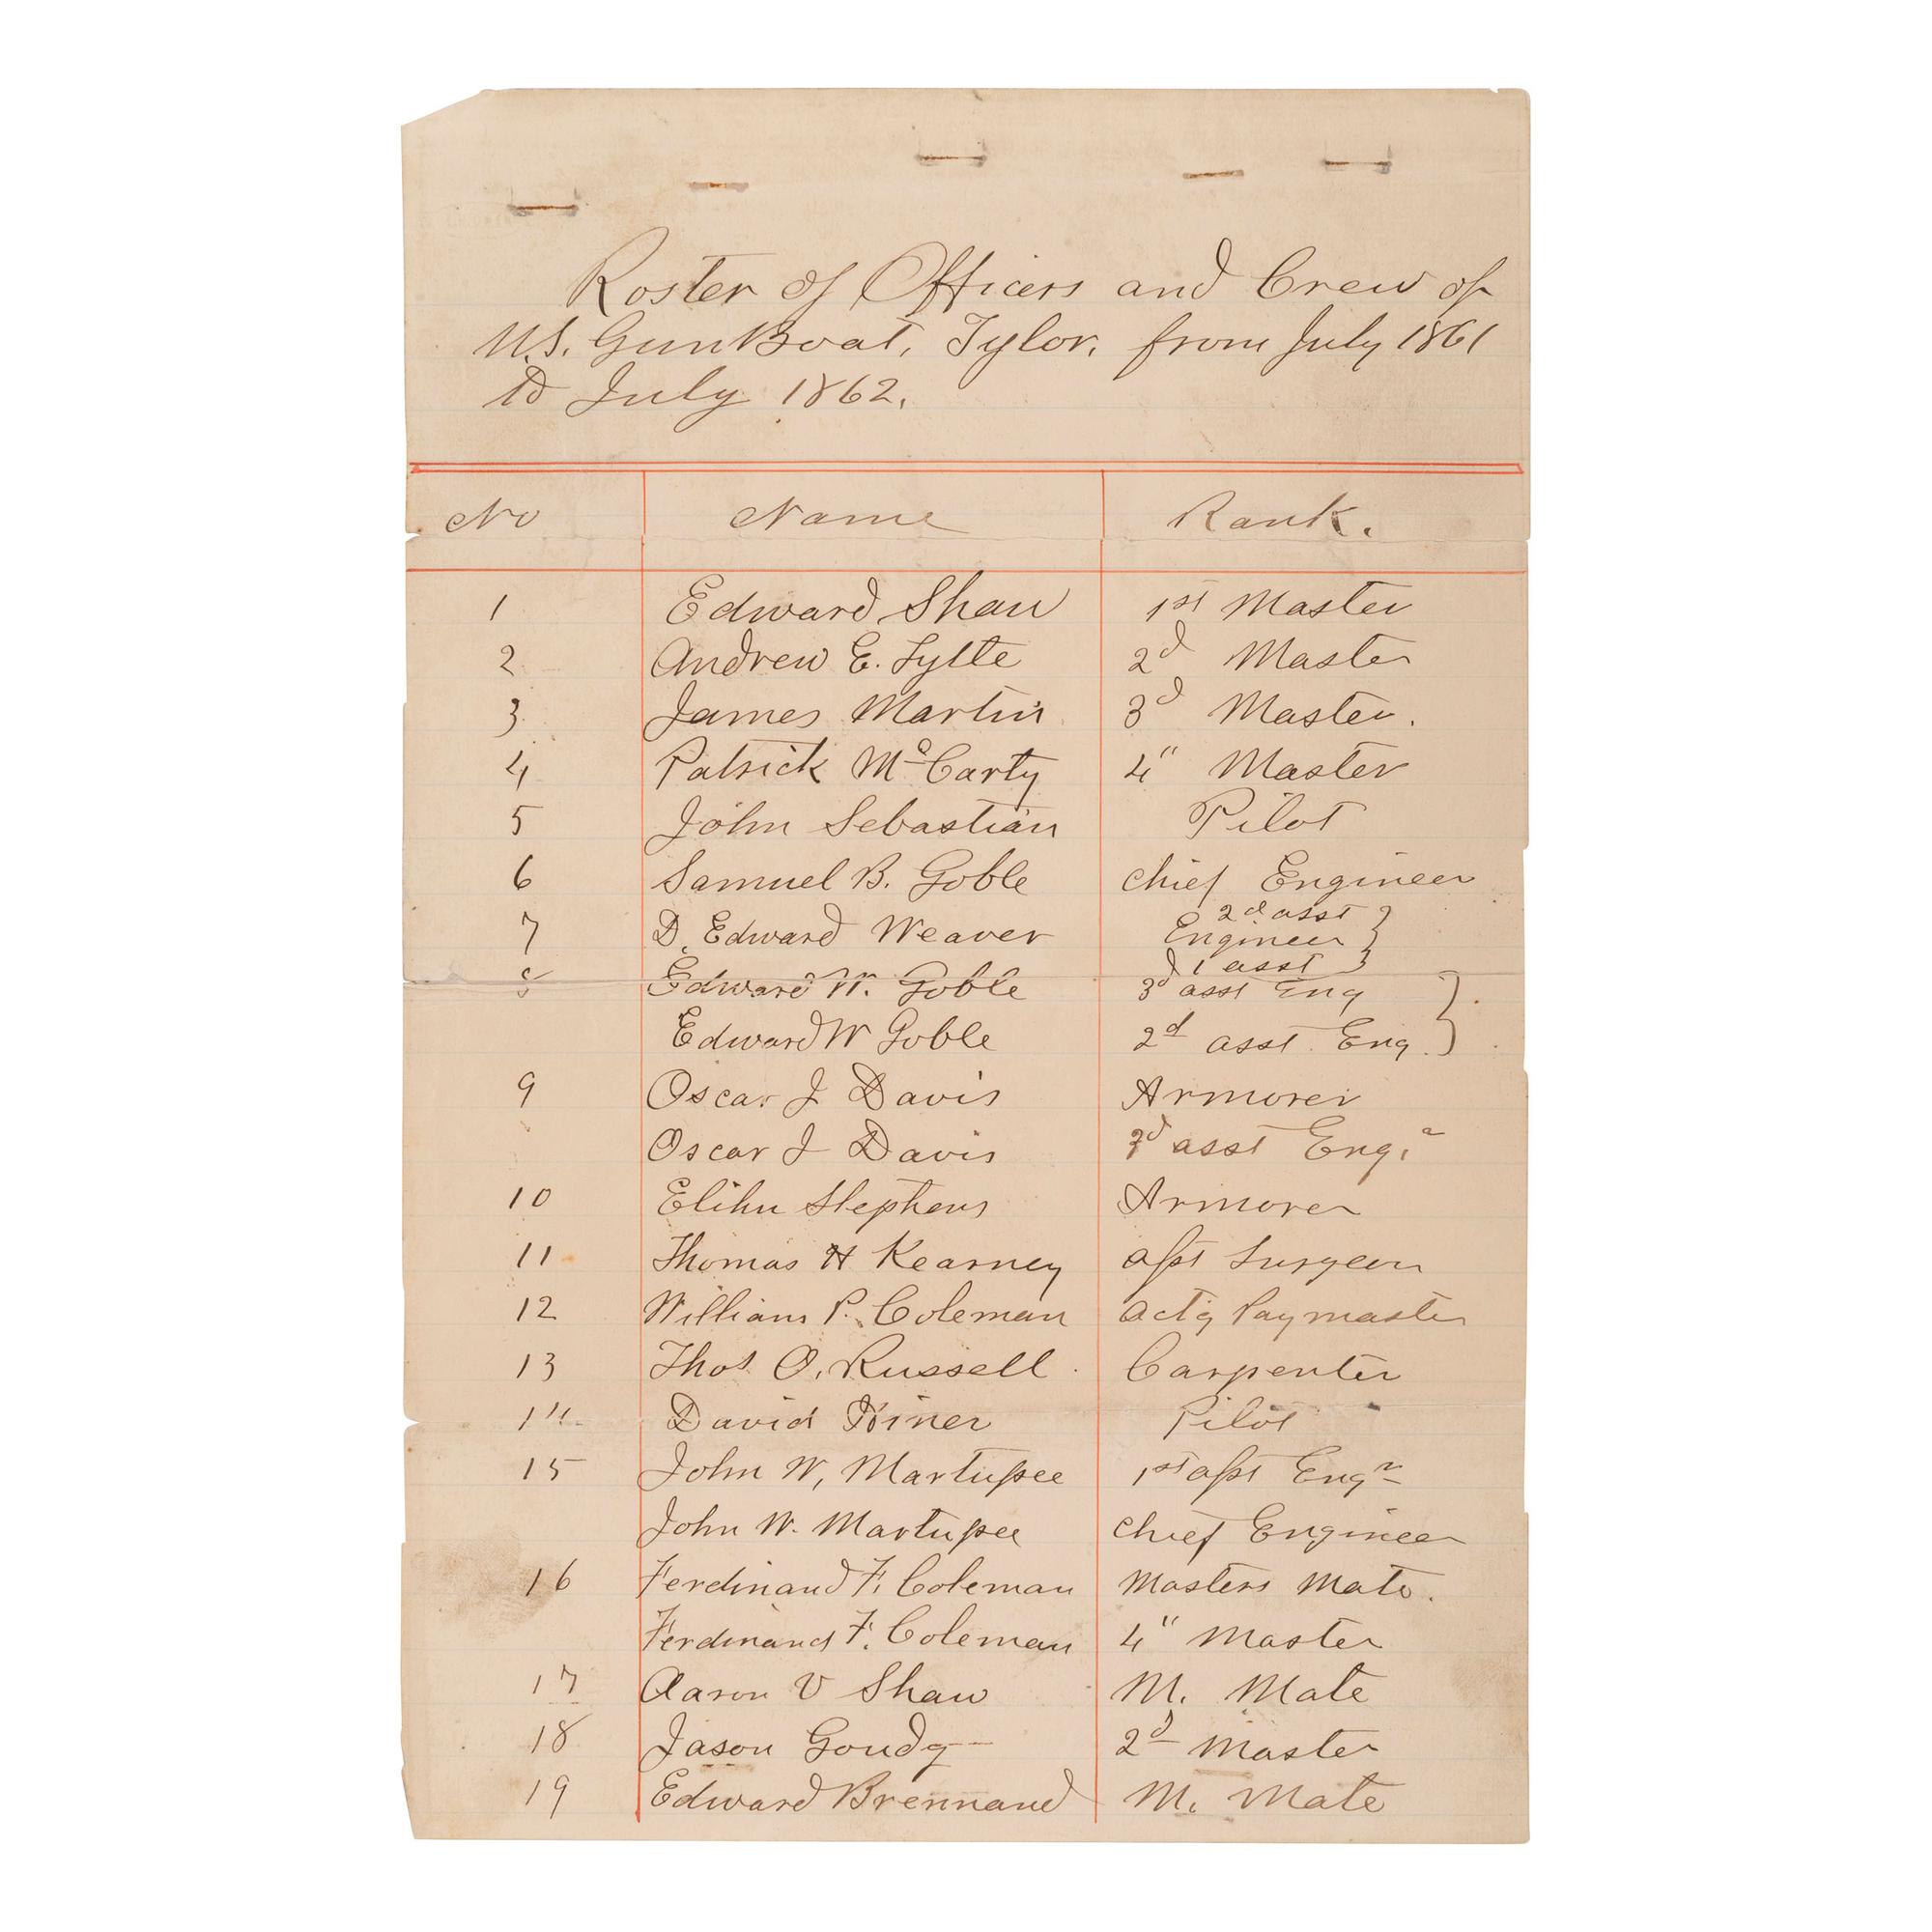 Roster of Officers and Crew of
U.S. GunBoat, Tylor, from July 1861
to July 1862.
No Name Rank.
1 Edward Shaw 1st Master
2 Andrew E. Lytle 2d Master
3 James Martin 3d Master.
4 Patrick McCarty 4" Master
5 John Sebastian Pilot
6 Samuel B. Goble Chief Engineer
2d asst
7 D. Edward Weaver Engineer
1 asst
8 Edward W. Goble 3d asst Eng
Edward W Goble 2d asst Eng.
9 Oscar J Davis Armorer
Oscar J Davis 3d asst Engr
10 Elihu Stephens Armorer
11 Thomas H Kearney asst Surgeon
12 William P. Coleman actg Paymaster
13 Thos. O. Russell Carpenter
14 David Hiner Pilot
15 John W. Martupee 1st asst Engr
John W. Martupee Chief Engineer
16 Ferdinand F. Coleman Masters Mate.
Ferdinand F. Coleman 4" Master
17 Aaron V Shaw M. Mate
18 Jason Goudy 2d Master
19 Edward Brennand M. Mate